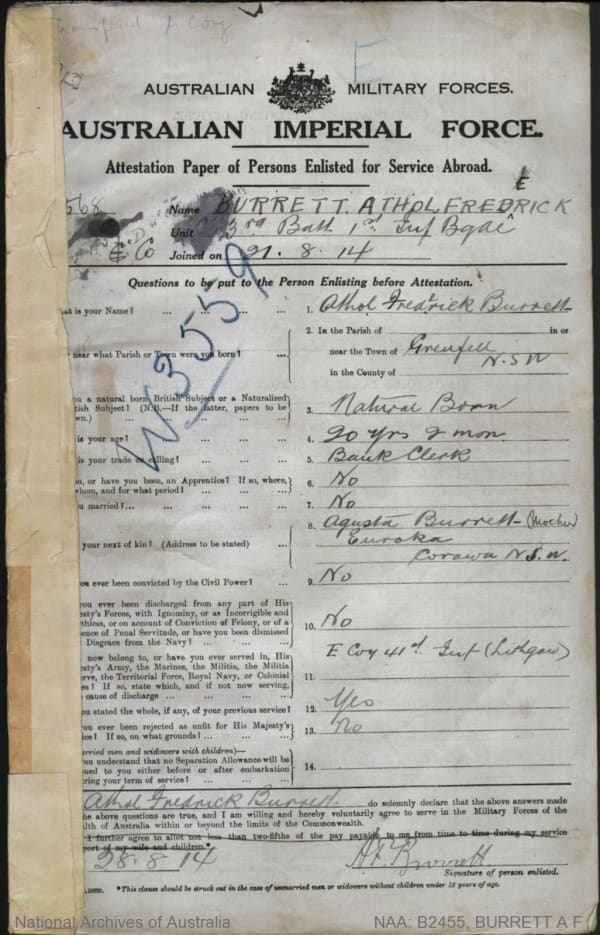 E
AUSTRALIAN MILITARY FORCES.
AUSTRALIAN IMPERIAL FORCE.
Attestation Paper of Persons Enlisted for Service Abroad.
568 Name BURRETT. ATHOL FREDRICK
E
Unit 3rd Batt 1st Inf Bgde
"D" E Co Joined on 21. 8. 14
Questions to be put to the Person Enlisting before Attestation.
W3559
at is your Name? ... ... ... 1. Athol Fredrick Burrett
2. In the Parish of in or
near what Parish or Town were you born? ... near the Town of Grenfell
in the County of N.S.W
u a natural born British Subject or a Naturalized
tish Subject? (N.B.—If the latter, papers to be
wn.) ... ... ... 3. Natural Born
is your age? ... ... ... 4. 20 yrs 2 mon.
is your trade or calling? ... ... ... 5. Bank Clerk
u, or have you been, an Apprentice? If so, where,
whom, and for what period? ... ... 6. No
you married? ... ... ... 7. No
8. Agusta Burrett (Mother)
your next of kin? (Address to be stated) ... Euroka
Corowa N.S.W.
ou ever been convicted by the Civil Power? ... 9. No
you ever been discharged from any part of His
esty's Forces, with Ignominy, or as Incorrigible and
thless, or on account of Conviction of Felony, or of a
ence of Penal Servitude, or have you been dismissed
Disgrace from the Navy? ... ... 10. No
now belong to, or have you ever served in, His
esty's Army, the Marines, the Militia, the Militia
rve, the Territorial Force, Royal Navy, or Colonial
es? If so, state which, and if not now serving,
cause of discharge ... ... ... 11. E Coy 41st Inf (Lithgow)
ou stated the whole, if any, of your previous service? 12. Yes
ou ever been rejected as unfit for His Majesty's
ice? If so, on what grounds? ... ... 13. No
arried men and widowers with children)—
ou understand that no Separation Allowance will be
ued to you either before or after embarkation
ring your term of service? ... ... 14.
Athol Fredrick Burrett do solemnly declare that the above answers made
he above questions are true, and I am willing and hereby voluntarily agree to serve in the Military Forces of the
lth of Australia within or beyond the limits of the Commonwealth.
I further agree to allot not less than two-fifths of the pay payable to me from time to time during my service
port of my wife and children.*
28.8.14 A F. Burrett
Signature of person enlisted.
*This clause should be struck out in the case of unmarried men or widowers without children under 18 years of age.
National Archives of Australia NAA: B2455, BURRETT A F